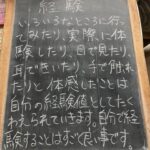 経験
いろいろなところに行っ
てみたり、実際に体
験したり、目で見たり、
耳できいたり、手で触れ
たりと体感したことは
自分の経験値としてたく
わえられています。自分で経
験することはすごく良い事です。